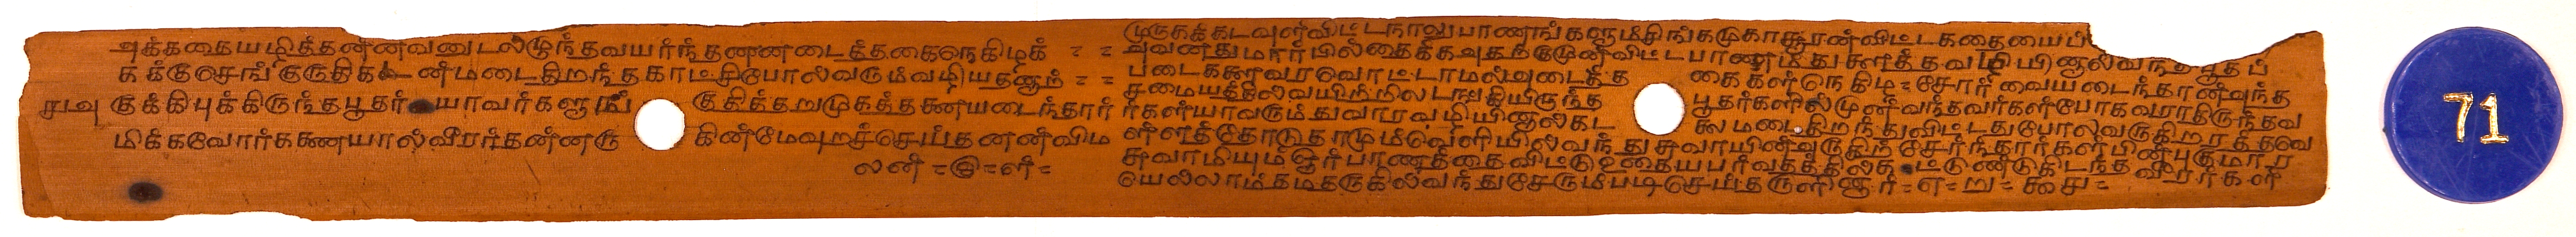 அக்கதையழித்தண்ணவனுடல்மூழ்ந்தவயர்ந்தணணடைத்தகைநெகிழக் = =
கக்குசெங்குருதிகடன்மடைதிறந்தகாட்சிபோல்வரும்வழியதனூற் = =
குக்கிபுக்கிருந்தபூதர் யாவர்களுமங் குதித்தறுமுகத்தணையடைந்தார்
மிக்கவோர்கணையால்வீரர்தன்னரு கின்மேவுறச்செய்தனன்விம
லன் =௫=ள=
முருகக்கடவுள்விட்டநாலுபாணங்களும்சிங்கமுகாசூரன்விட்டகதையைப்
அவனதுமார்பில்தைக்கஅதற்குமுன்விட்டபாணம்துளைத்தவழியினால்வந்தபூதப்
படைகளைவரவொட்டாமல்அடைத்த கைகள்நெகிழ=சோர்வையடைந்தான்அந்த
சமையத்தில்வயிற்றிலடங்கியிருந்த பூதர்களில்முன்வந்தவர்கள்போகவராதிருந்தவ
ர்கள்யாவரும்துவாரவழியினால்கட லுமடைதிறந்துவிட்டதுபோல்வருகிறரத்தவெ
ள்ளத்தோடுதாமும்வெளியில்வந்துசுவாமியினருகிற்சேர்ந்தார்கள்பின்புகுமார
சுவாமியும்ஓர்பாணத்தைவிட்டுஉதையபர்வதத்தில்கட்டுண்டுகிடந்த வீரர்கள்
யெல்லாம்தமதருகில்வந்துசேரும்படிசெய்தருளினார்=எ=று= ௯சு=
71